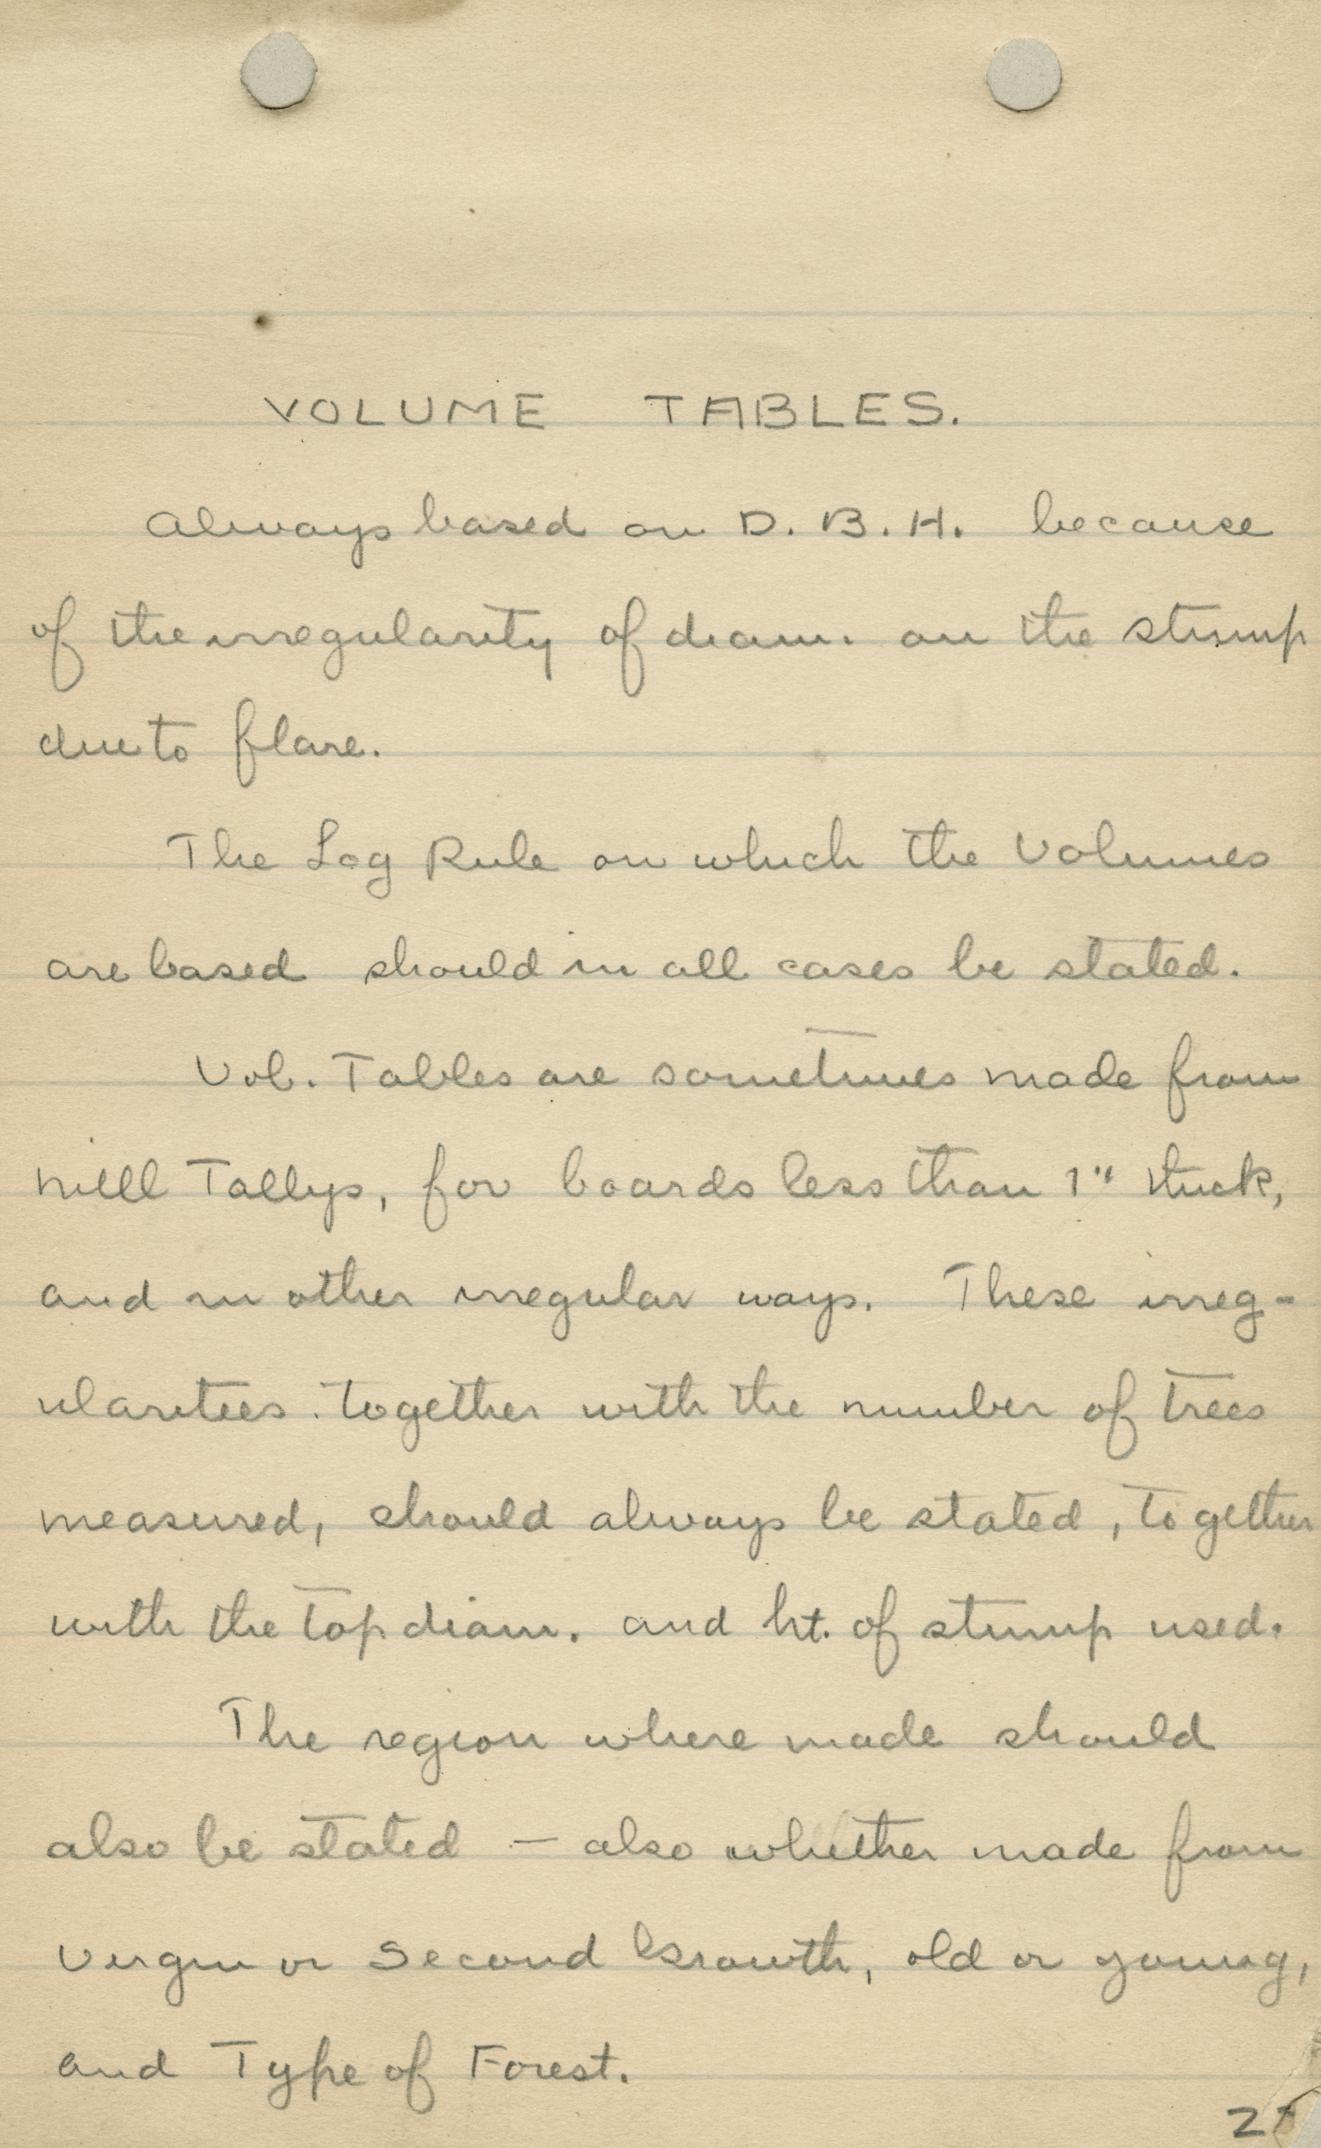 VOLUME TABLES.
Always based on D.B.H. because
of the irregularity of diam. on the stump
due to flare.
The Log Rule on which the Volumes
are based should in all cases be stated.
Vol. Tables are sometimes made from
Mill Tallys, for boards less than 1" thick,
and in other irregular ways. These irreg-
ularities. together with the number of trees
measured, should always be stated, together
with the top diam. and ht. of stump used.
The region where made should
also be stated — also whether made from
Virgin or Second Growth, old or young,
and Type of Forest.